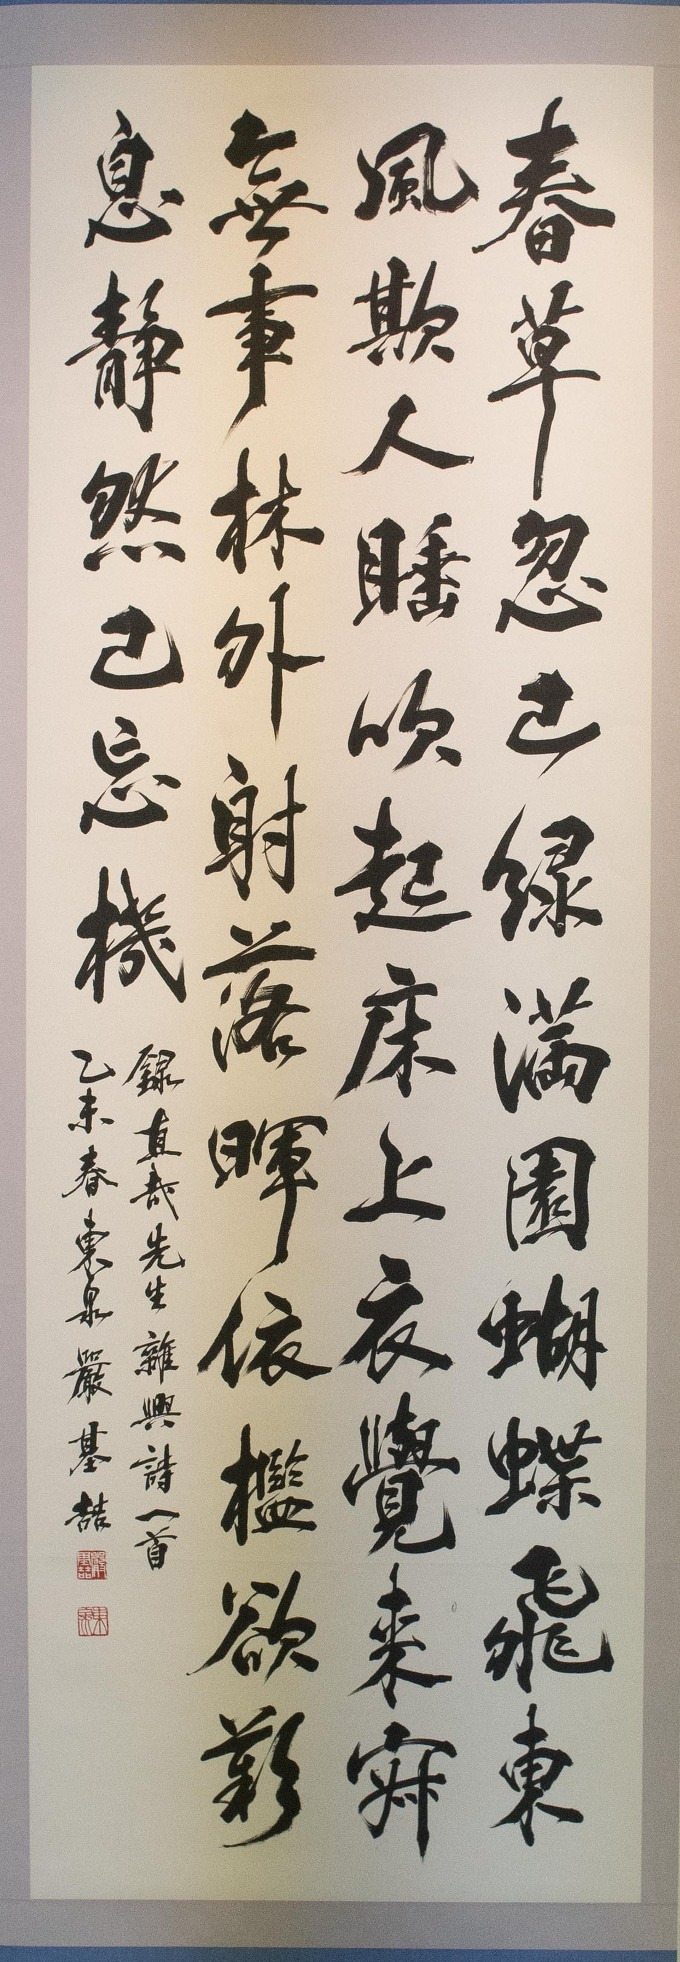 春草忽已綠滿園蝴蝶飛東
風欺人睡吹起床上衣覺来寂
無事林外射落暉依檻欲歎
息靜然已忘機
錄直哉先生雜興詩一首
乙未春東泉嚴基喆